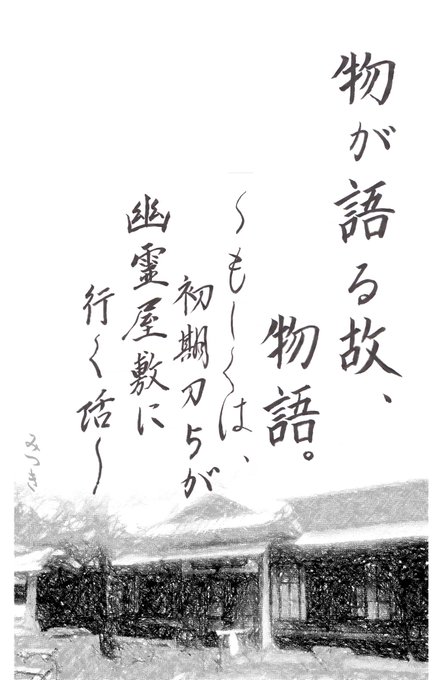 物が語る故、
物語。
〜もしくは、
初期刀5が
幽霊屋敷に
行く話〜
みつき